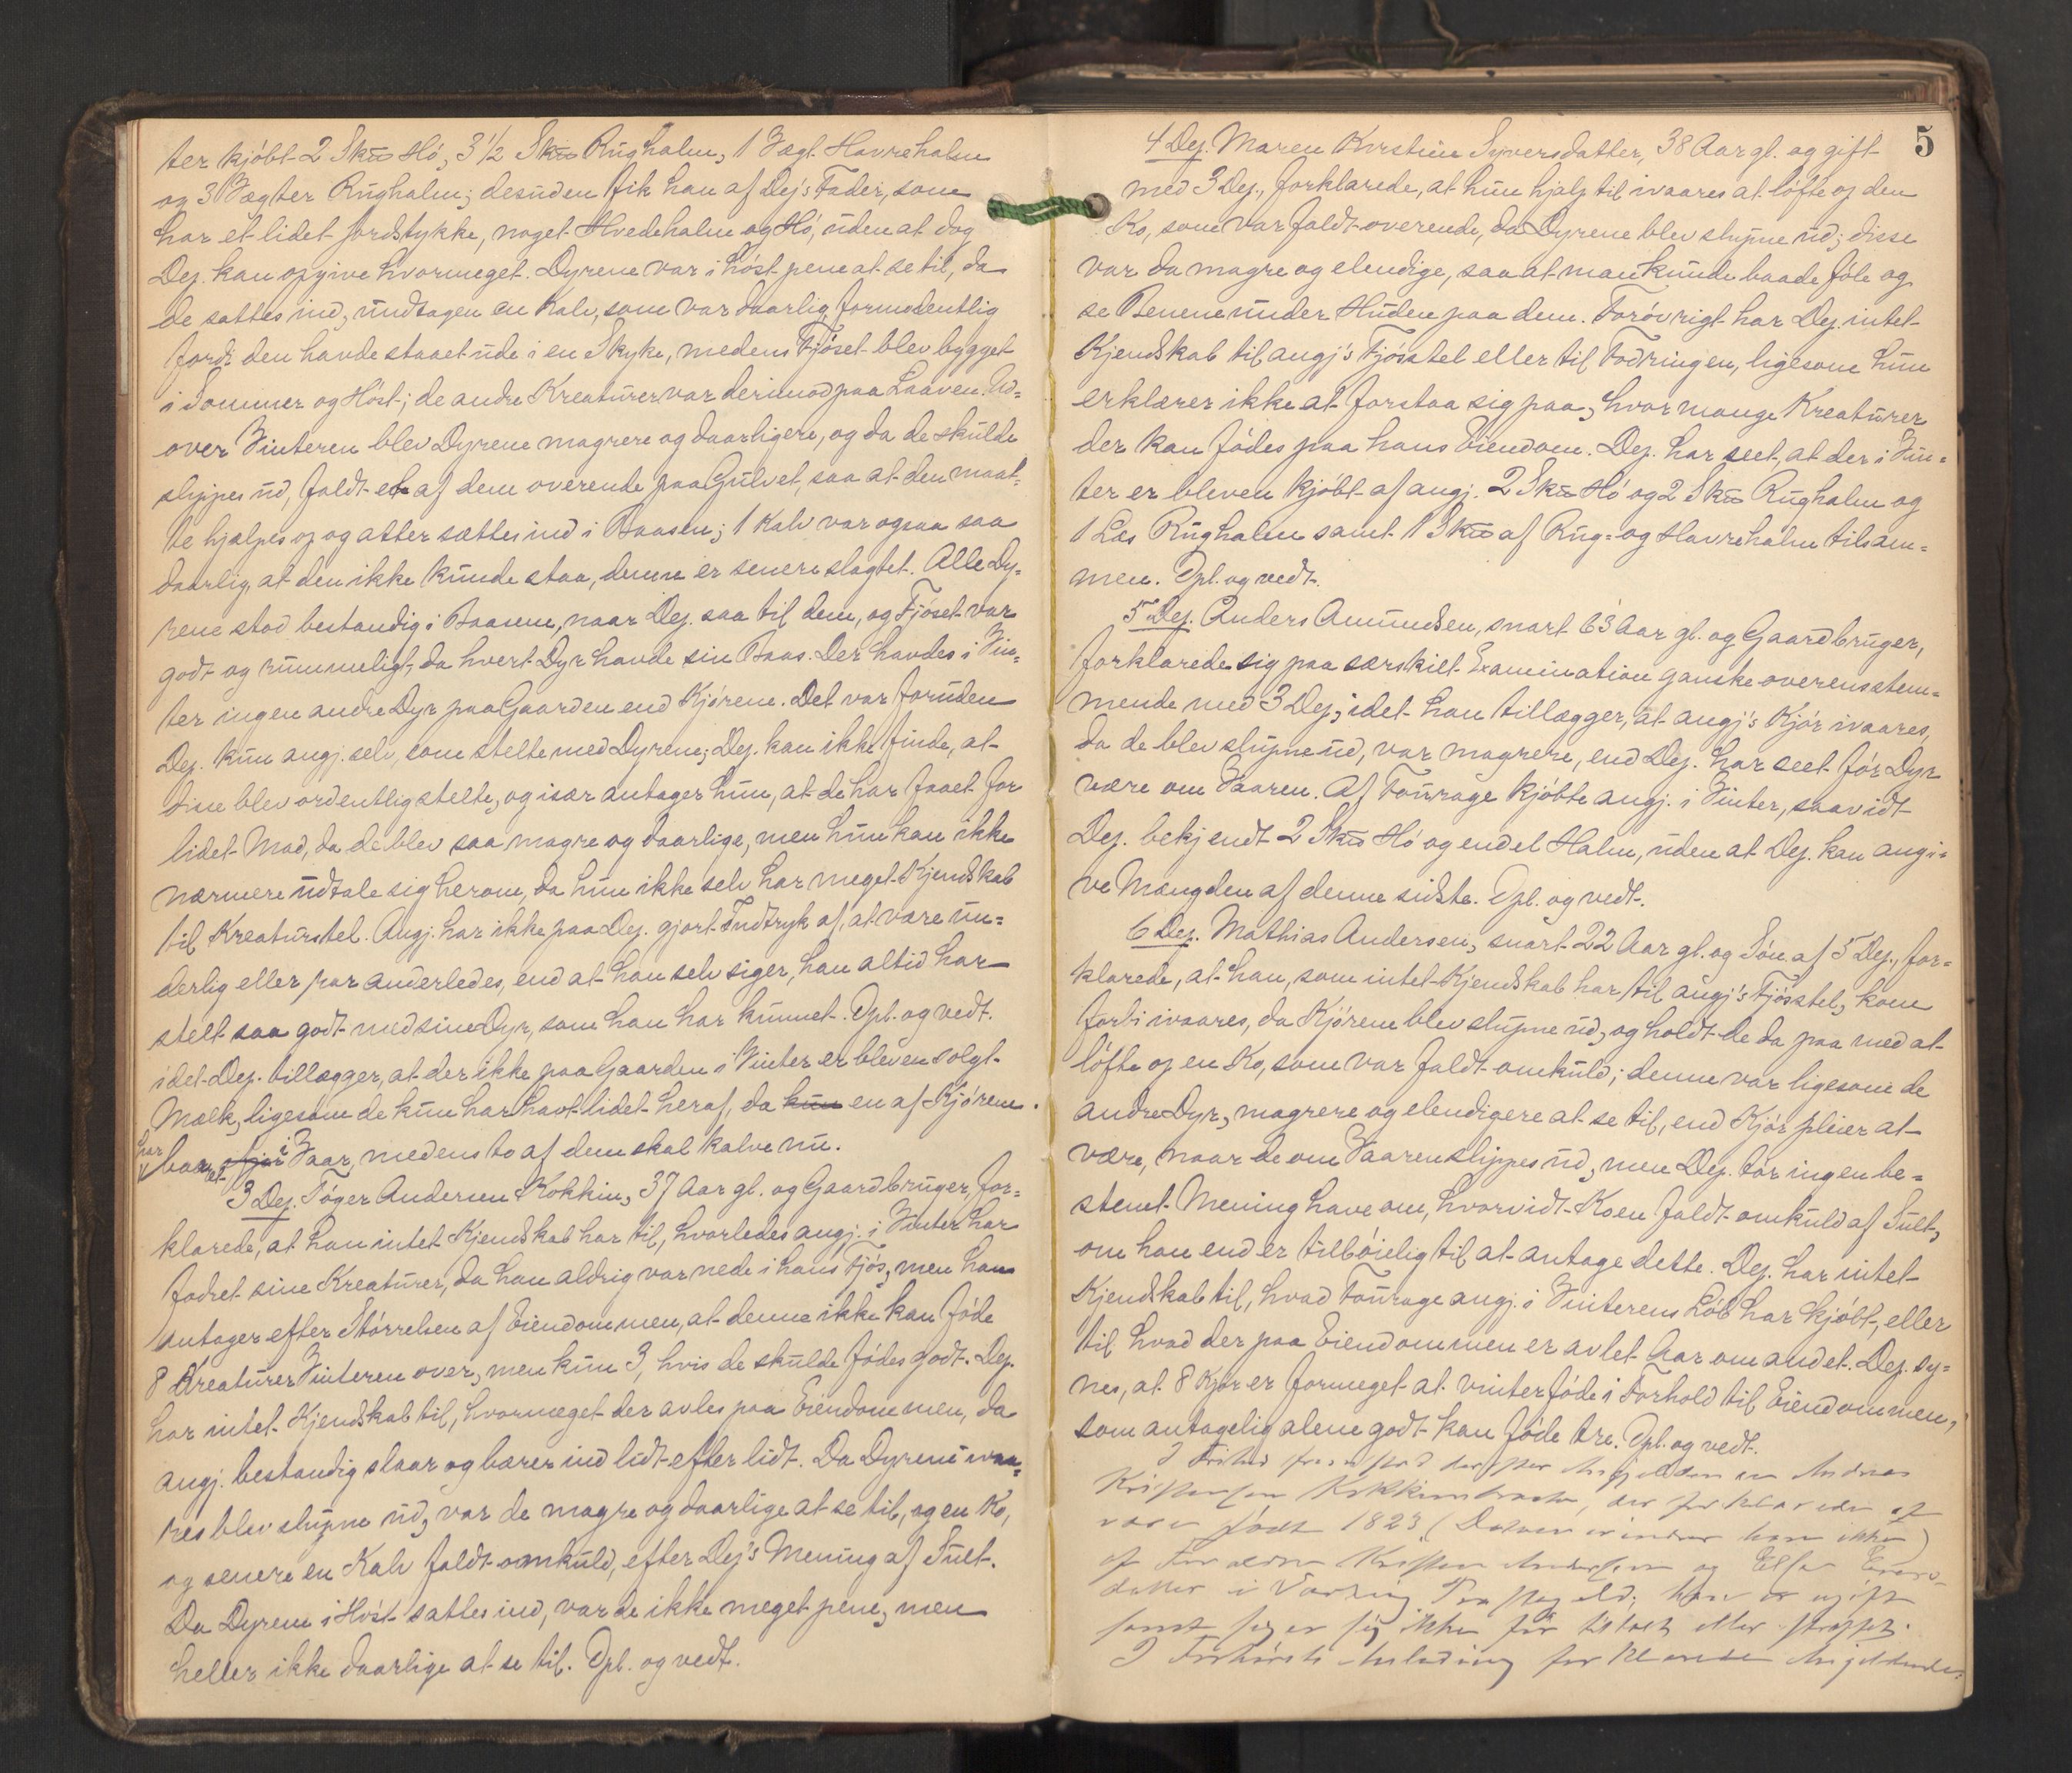 ter kjöbt 2 Sk℔ Hö, 3 1/2 Sk℔ Rughalm, 1 Vægt Havrehalm
og 3 Vægter Rughalm; desuden fik han af Dep's Fader, som
har et lidet Jordstykke, noget Hvedehalm og Hö, uden at dog
Dep. kan opgive hvormeget. Dyrene var i Höst pene at se til, da
de sattes ind, undtagen en Kalv, som var daarlig, formodentlig
fordi den havde staaet ude i en Skyke, medens Fjöset blev bygget
i Sommer og Höst; de andre Kreaturer var derimod paa Laaven. Ud=
over Vinteren blev Dyrene magrere og daarligere, og da de skulde
slippes ud, faldt en af dem overende paa Gulvet, saa at den maat=
te hjælpes op og atter sættes ind i Baasen; 1 Kalv var ogsaa saa
daarlig, at den ikke kunde staa, denne er senere slagtet. Alle Dy=
rene stod bestandig i Baasene, naar Dep. saa til dem, og Fjöset var
godt og rummeligt, da hvert Dyr havde sin Baas. Der havdes i Vin=
ter ingen andre Dyr paa Gaarden end Kjörene. Det var foruden
Dep. kun angj. selv, som stelte med Dyrene; Dep. kan ikke finde, at
disse blev ordentlig stelte, og især antager hun, at de har faaet for
lidet Mad, da de blev saa magre og daarlige, men hun kan ikke
nærmere udtale sig herom, da hun ikke selv har meget Kjendskab
til Kreaturstel. Angj. har ikke paa Dep. gjort Indtryk af, at være un=
derlig eller rar anderledes, end at han selv siger, han altid har
stelt saa godt med sine Dyr, som han har kunnet. Opl. og vedt.
idet Dep. tillægger, at der ikke paa Gaarden i Vinter er bleven solgt
Mælk, ligesom de kun har havt lidet heraf, da kun en af Kjörene
har baaret i Vaar, medens to af dem skal kalve nu.
3 Dep. Töger Andersen Kokkin, 37 Aar gl. og Gaardbruger, for=
klarede, at han intet Kjendskab har til, hvorledes angj. i Vinter har
fodret sine Kreaturer, da han aldrig var nede i hans Fjös; men han
antager efter Störrelsen af Eiendommen, at denne ikke kan föde
8 Kreaturer Vinteren over, men kun 3, hvis de skulde födes godt. Dep.
har intet Kjendskab til, hvormeget der avles paa Eiendommen, da
angj. bestandig slaar og bærer ind lidt efter lidt. Da Dyrene ivaa=
res blev slupne ud, var de magre og daarlige at se til, og en Ko,
og senere en Kalv faldt omkuld, efter Dep's Mening af Sult.
Da Dyrene i Höst sattes ind, var de ikke meget pene, men
heller ikke daarlige at se til. Opl. og vedt.
5
4 Dep. Maren Kirstine Syversdatter, 38 Aar gl. og gift
med 3 Dep., forklarede, at hun hjalp til ivaares at löfte op den
Ko, som var faldt overende, da Dyrene blev slupne ud; disse
var da magre og elendige, saa at man kunde baade föle og
se Benene under Huden paa dem. Forövrigt har Dep. intet
Kjendskab til angj's Fjösstel eller til Fodringen, ligesom hun
erklærer ikke at forstaa sig paa, hvor mange Kreaturer
der kan födes paa hans Eiendom. Dep. har seet, at der i Vin=
ter er bleven kjöbt af angj. 2 Sk℔ Hö og 2 Sk℔ Rughalm og
1 Læs Rughalm samt 1 Sk℔ af Rug= og Havrehalm tilsam=
men. Opl. og vedt.
5 Dep. Anders Amundsen, snart 63 Aar gl. og Gaardbruger,
forklarede sig paa særskilt Examination ganske overensstem=
mende med 3 Dep., idet han tillægger, at angj's Kjör ivaares,
da de blev slupne ud, var magrere, end Dep. har seet för Dyr
være om Vaaren. Af Fourage kjöbte angj. i Vinter, saavidt
Dep. bekjendt 2 Sk℔ Hö og endel Halm, uden at Dep. kan angi=
ve Mængden af denne sidste. Opl. og vedt.
6 Dep. Mathias Andersen, snart 22 Aar gl. og Sön af 5 Dep., for=
klarede, at han, som intet Kjendskab har til angj's Fjösstel, kom
forbi ivaares, da Kjörene blev slupne ud, og holdt de da paa med at
löfte op en Ko, som var faldt omkuld; denne var ligesom de
andre Dyr, magrere og elendigere at se til, end Kjör pleier at
være, naar de om Vaaren slippes ud, men Dep. tör ingen be=
stemt Mening have om, hvorvidt Koen faldt omkuld af Sult,
om han end er tilböielig til at antage dette. Dep. har intet
Kjendskab til, hvad Fourage angj. i Vinterens Löb har kjöbt, eller
til hvad der paa Eiendommen er avlet Aar om andet. Dep. sy=
nes, at 8 Kjör er formeget at vinterföde i Forhold til Eiendommen,
som antagelig alene godt kan föde tre. Opl. og vedt.
I Frihed Andreas
Kristensen der forklarede at
være född 1823 (Datoen erindrer han ikke)
af Forældre Kristen Andersen og Else
datter i Præstegjeld; han er ugift
samt siger sig ikke för tiltalt eller straffet.
I Forhörets Anledning forklarede Angjeldende: